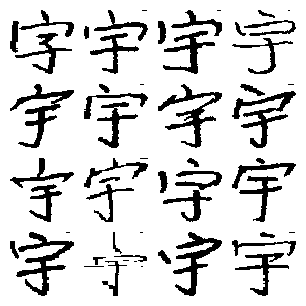 字宇宇宇
宇宇宇宇
宇宇字宇
宇宇宇